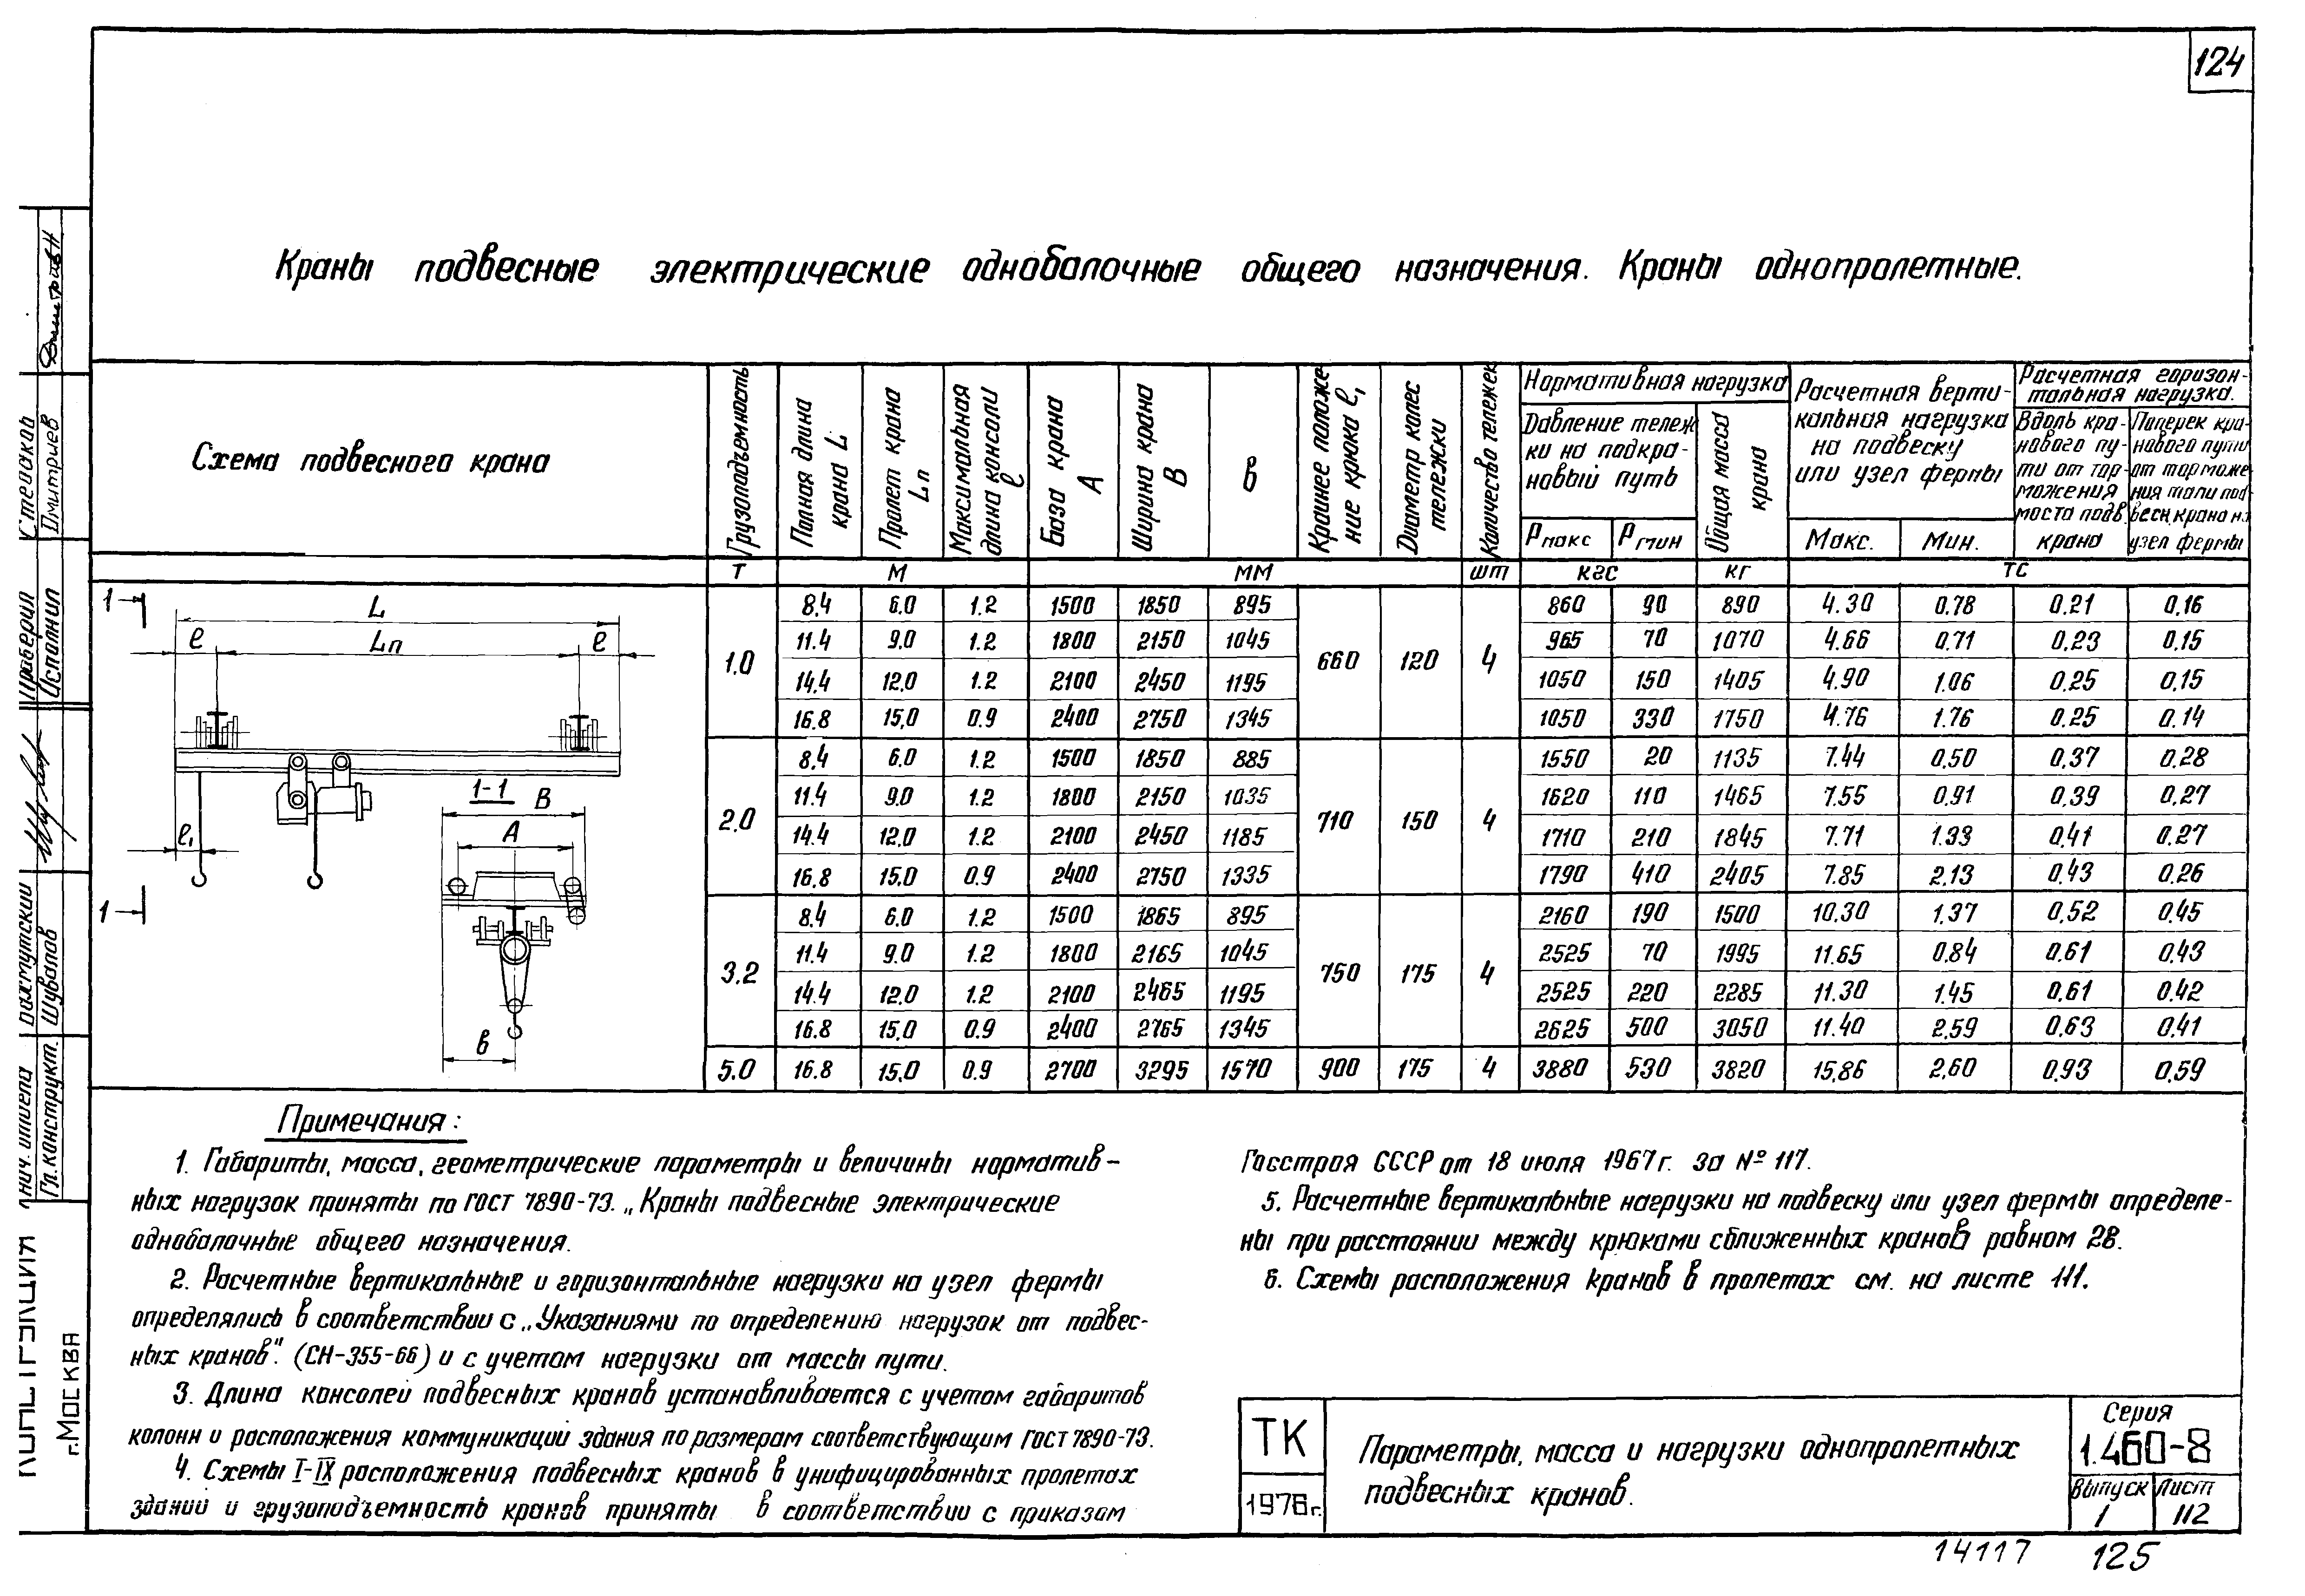 124
Краны подвесные электрические однобалочные общего назначения. Краны однопролетные.
Схема подвесного крана
Грузоподъемность
Полная длина крана L
Пролет крана Lп
Максимальная длина консоли ℓ
База крана А
Ширина крана В
в
Крайнее положение крюка ℓ₁
Диаметр колес тележки
Количество тележек
Нормативная нагрузка
Давление тележки на подкрановый путь
Рмакс Рмин
Общая масса крана
Расчетная вертикальная нагрузка на подвеску или узел фермы
Макс. Мин.
Расчетная горизонтальная нагрузка.
Вдоль кранового пути от торможения моста подв. крана
Поперек кранового пути от торможения тали подвесн. крана на узел фермы
т м мм шт кгс кг тс
1.0 8.4 6.0 1.2 1500 1850 895 660 120 4 860 90 890 4.30 0.78 0.21 0.16
11.4 9.0 1.2 1800 2150 1045 965 70 1070 4.66 0.71 0.23 0.15
14.4 12.0 1.2 2100 2450 1195 1050 150 1405 4.90 1.06 0.25 0.15
16.8 15.0 0.9 2400 2750 1345 1050 330 1750 4.76 1.76 0.25 0.14
2.0 8.4 6.0 1.2 1500 1850 885 710 150 4 1550 20 1135 7.44 0.50 0.37 0.28
11.4 9.0 1.2 1800 2150 1035 1620 110 1465 7.55 0.91 0.39 0.27
14.4 12.0 1.2 2100 2450 1185 1710 210 1845 7.71 1.33 0.41 0.27
16.8 15.0 0.9 2400 2750 1335 1790 410 2405 7.85 2.13 0.43 0.26
3.2 8.4 6.0 1.2 1500 1865 895 750 175 4 2160 190 1500 10.30 1.37 0.52 0.45
11.4 9.0 1.2 1800 2165 1045 2525 70 1995 11.65 0.84 0.61 0.43
14.4 12.0 1.2 2100 2465 1195 2525 220 2285 11.30 1.45 0.61 0.42
16.8 15.0 0.9 2400 2765 1345 2625 500 3050 11.40 2.59 0.63 0.41
5.0 16.8 15.0 0.9 2700 3295 1570 900 175 4 3880 530 3820 15.86 2.60 0.93 0.59
1
L
ℓ Lп ℓ
1-1 В
А
ℓ₁
1
в
Примечания:
1. Габариты, масса, геометрические параметры и величины норматив-
ных нагрузок приняты по ГОСТ 7890-73. „Краны подвесные электрические
однобалочные общего назначения.
2. Расчетные вертикальные и горизонтальные нагрузки на узел фермы
определялись в соответствии с „Указаниями по определению нагрузок от подвес-
ных кранов". (СН-355-66) и с учетом нагрузки от массы пути.
3. Длина консолей подвесных кранов устанавливается с учетом габаритов
колонн и расположения коммуникаций здания по размерам соответствующим ГОСТ 7890-73.
4. Схемы I-IX расположения подвесных кранов в унифицированных пролетах
зданий и грузоподъемность кранов приняты в соответствии с приказом
Госстроя СССР от 18 июля 1967г. за № 117.
5. Расчетные вертикальные нагрузки на подвеску или узел фермы определе-
ны при расстоянии между крюками сближенных кранов равном 2в.
6. Схемы расположения кранов в пролетах см. на листе 111.
ТК
1976г.
Параметры, масса и нагрузки однопролетных
подвесных кранов.
Серия
1.460-8
Выпуск Лист
1 112
14117 125
Стесаков
Дмитриев
Проверил
Исполнил
Бахмутский
Шувалов
Нач. отдела
Гл. конструкт.
г. Москва